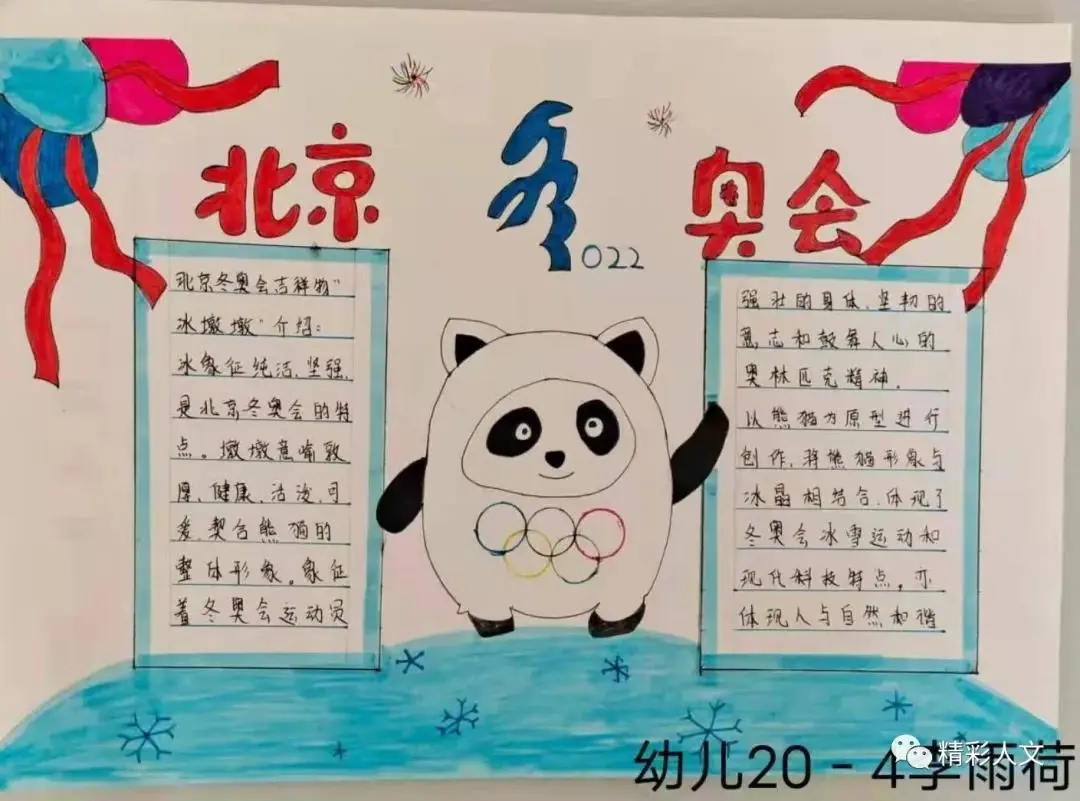 北京 冬 奥会
022
北京冬奥会吉祥物"
冰墩墩"介绍：
冰象征纯洁、坚强，
是北京冬奥会的特
点。墩墩意喻敦
厚、健康、活泼、可
爱，契合熊猫的
整体形象。象征
着冬奥会运动员
强壮的身体、坚韧的
意志和鼓舞人心的
奥林匹克精神。
以熊猫为原型进行
创作，将熊猫形象与
冰晶相结合，体现了
冬奥会冰雪运动和
现代科技特点，亦
体现人与自然和谐
幼儿20-4李雨荷
精彩人文